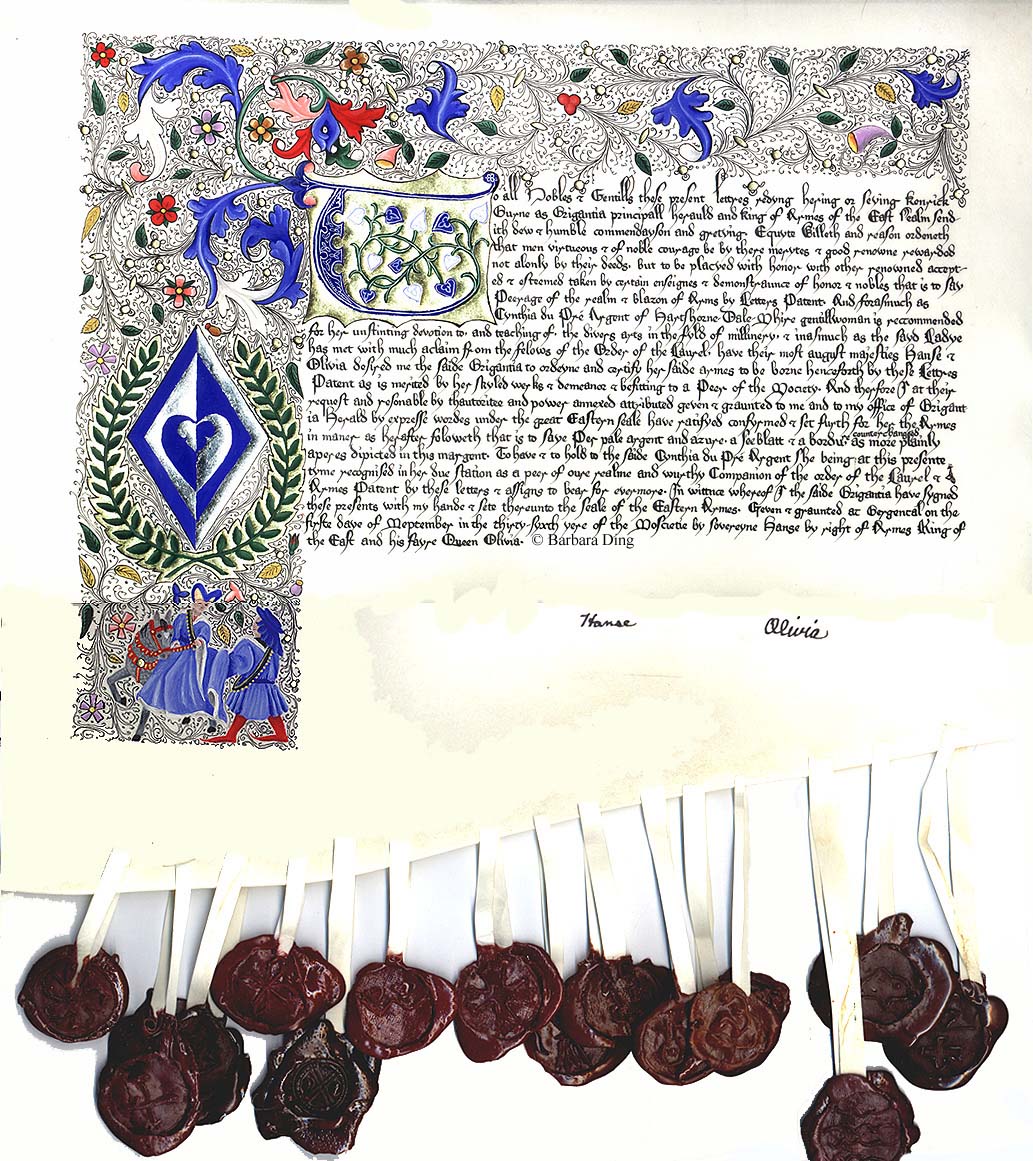 To all Nobles & Gentills these present lettres redyng hering or seying Kenrick
Gurne as Brigantia principall herauld and king of Armes of the East Realm send
ith dew & humble commendayson and gretyng Equyte Willeth and reason ordeneth
that men virtueous & of noble courage be by there merytes & good renowne rewarded
not alonly by their deeds, but to be placyed with honor with other renowned accept
ed & estremed taken by certain enseignes & demonstraunce of honor & nobles that is to say
Peerage of the realm & blazon of Arms by Letters Patent. And forasmuch as
Cynthia du Pré Argent of Hartshorne-Dale-Shire gentillwoman is recommended
for her unstinting devotion to, and teaching of, the divers arts in the fold of millinery, & inasmuch as the sayd Ladye
has met with much acclaim from the felows of the Order of the Laurel, have their most august majesties Hanse &
Olivia desyred me the saide Brigantia to ordeyne and certify her saide armes to be borne henceforth by these Lettres
Patent as is merited by her skyled werks & demeance & befitting to a Peer of the Society. And therefore I at their
request and resonable by thautoritee and power annexed attributed geven & graunted to me and to my office of Brigant
ia Herald by expresse wordes under the great Eastern seale have ratifyed confyrmed & set furth for her the Armes
in maner as herafter foloweth that is to saye Per pale argent and azure, a seeblatt & a bordur counterchanged, as more plainly
aperes dipicted in this margent. To have & to hold to the saide Cynthia du Pré Argent she being at this presente
tyme recognised in her due station as a peer of oure realme and wurthy Companion of the order of the Laurel & A
Armes Patent by these letters & assigns to bear for evermore. In wittnce whereof I the saide Brigantia have sygned
these presents with my hande & sete thereunto the seale of the Eastern Armes. Geven & graunted at Bergental on the
firste daye of September in the thirty-sixth yere of the Societie by sovereyne Hanse by right of Armes King of
the East and his fayre Queen Olivia. © Barbara Ding
Hanse Olivia